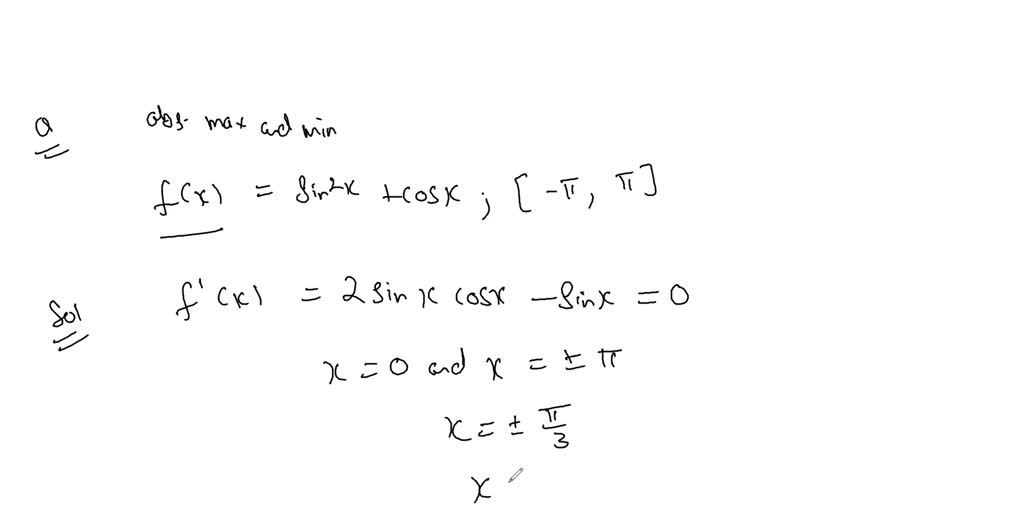 a abs. max and min
f(x) = sin²x + cosx ; [-π, π]
Sol f'(x) = 2 sin x cosx - sinx = 0
x = 0 and x = ± π
x = ± π/3
x